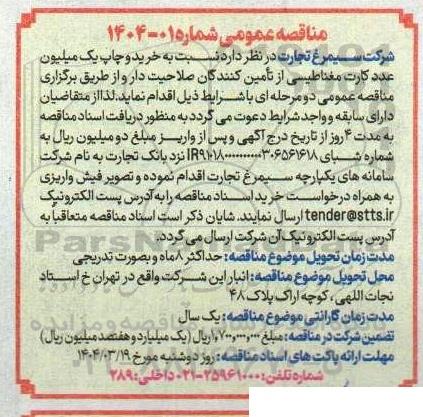 مناقصه عمومی شماره ۰۱-۱۴۰۴
شرکت سیمرغ تجارت در نظر دارد نسبت به خرید و چاپ یک میلیون
عدد کارت مغناطیسی از تأمین کنندگان صلاحیت دار و از طریق برگزاری
مناقصه عمومی دو مرحله ای با شرایط ذیل اقدام نماید. لذا از متقاضیان
دارای سابقه و واجد شرایط دعوت می گردد به منظور دریافت اسناد مناقصه
به مدت ۴ روز از تاریخ درج آگهی و پس از واریز مبلغ دو میلیون ریال به
شماره شبای نزد بانک تجارت به نام شرکت
سامانه های یکپارچه سیمرغ تجارت اقدام نموده و تصویر فیش واریزی
به همراه درخواست خرید اسناد مناقصه را به آدرس پست الکترونیک
tender@stts.ir ارسال نمایند. شایان ذکر است اسناد مناقصه متعاقبا به
آدرس پست الکترونیک آن شرکت ارسال می گردد.
مدت زمان تحویل موضوع مناقصه: حداکثر ۸ ماه و بصورت تدریجی
محل تحویل موضوع مناقصه: انبار این شرکت واقع در تهران خ استاد
نجات اللهی، کوچه اراک پلاک ۴۸
مدت زمان گارانتی موضوع مناقصه: یک سال
تضمین شرکت در مناقصه: مبلغ ۱,۷۰۰,۰۰۰,۰۰۰ ریال (یک میلیارد و هفتصد میلیون ریال)
مهلت ارائه پاکت های اسناد مناقصه: روز دوشنبه مورخ ۱۴۰۴/۰۳/۱۹
شماره تلفن: ۲۵۹۶۱۰۰۰-۰۲۱ داخلی: ۲۸۹